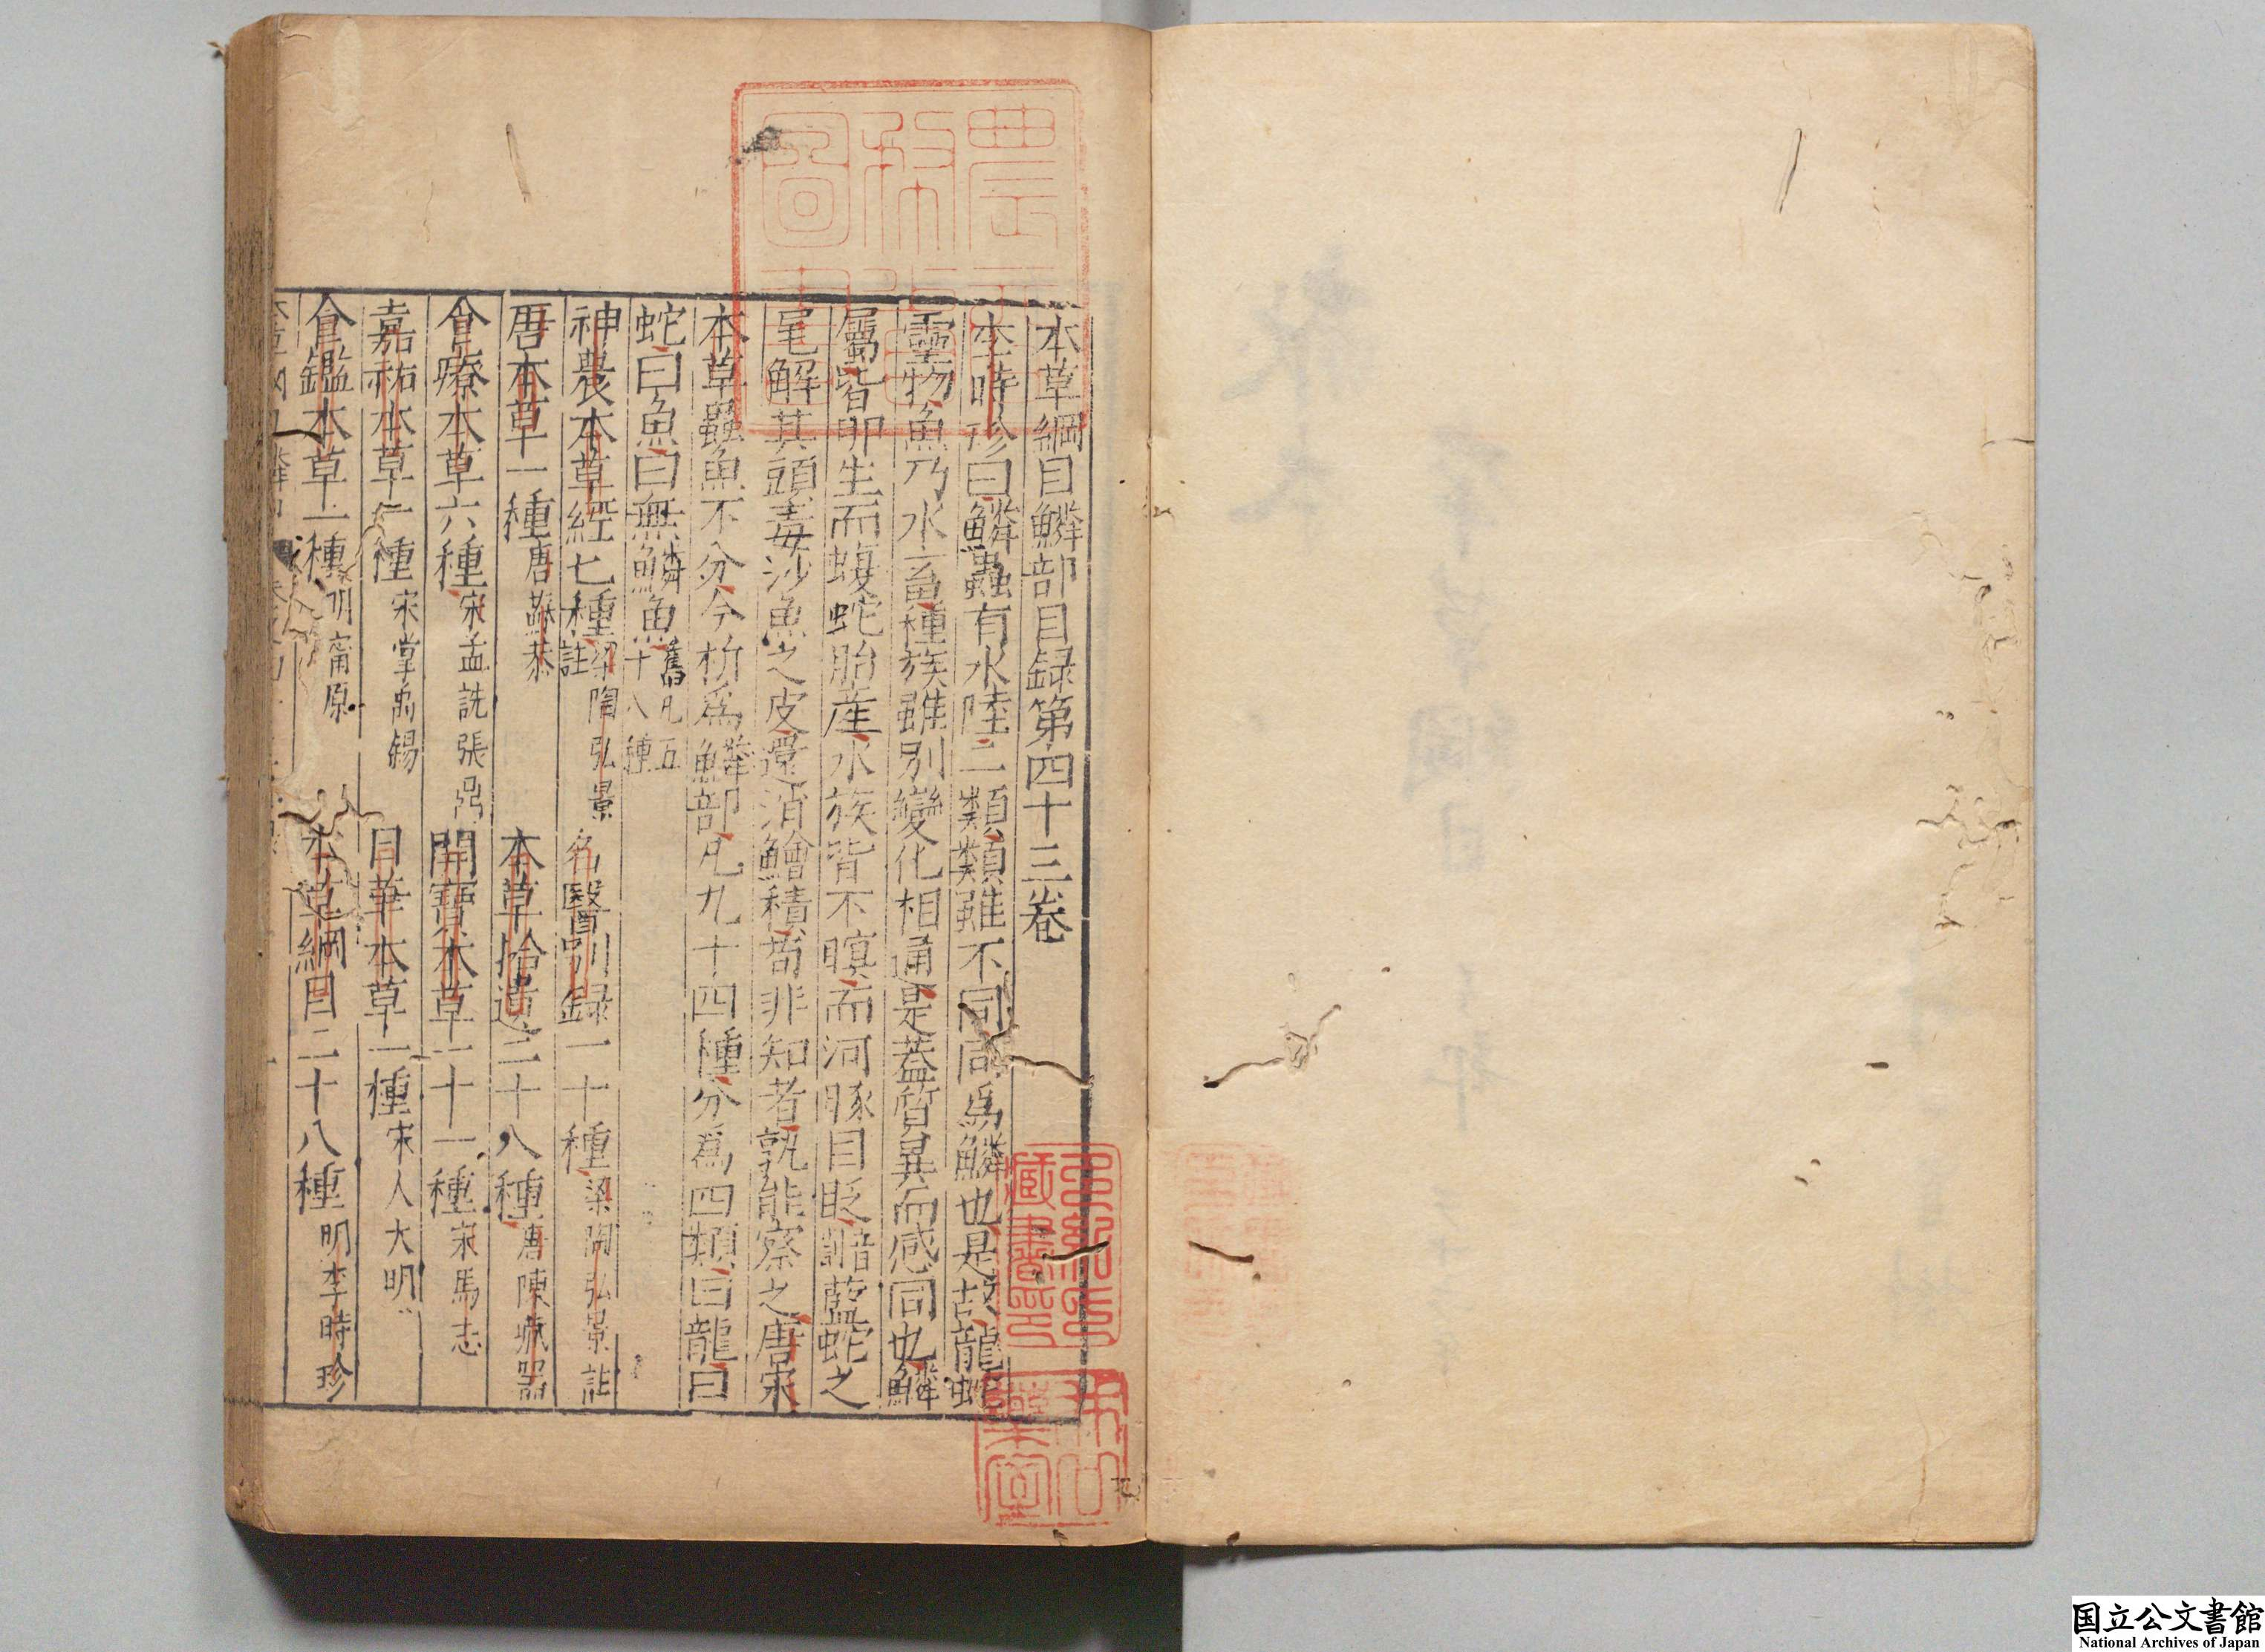 本草綱目鱗部目録第四十三卷
李時珍曰鱗蟲有水陸二類類雖不同同爲鱗也是故龍蛇
靈物魚乃水畜種族雖別變化相通是蓋質異而感同也鱗
屬皆卵生而蝮蛇胎產水族皆不瞑而河豚目眨䛳藍蛇之
尾解其頭毒沙魚之皮還消鱠積苟非知者孰能察之唐宋
本草蟲魚不分今析爲鱗部凡九十四種分爲四類曰龍曰
蛇曰魚曰無鱗魚 舊凡五十八種
神農本草經七種 梁陶弘景註 名醫別録一十種 梁陶弘景註
唐本草一種 唐蘇恭 本草拾遺二十八種 唐陳藏器
食療本草六種 宋孟詵張鼎 開寶本草一十一種 宋馬志
嘉祐本草一種 宋掌禹錫 日華本草一種 宋人大明
食鑑本草一種 明甯原 本草綱目二十八種 明李時珍
農
圖書
藏書印
国立公文書館
National Archives of Japan